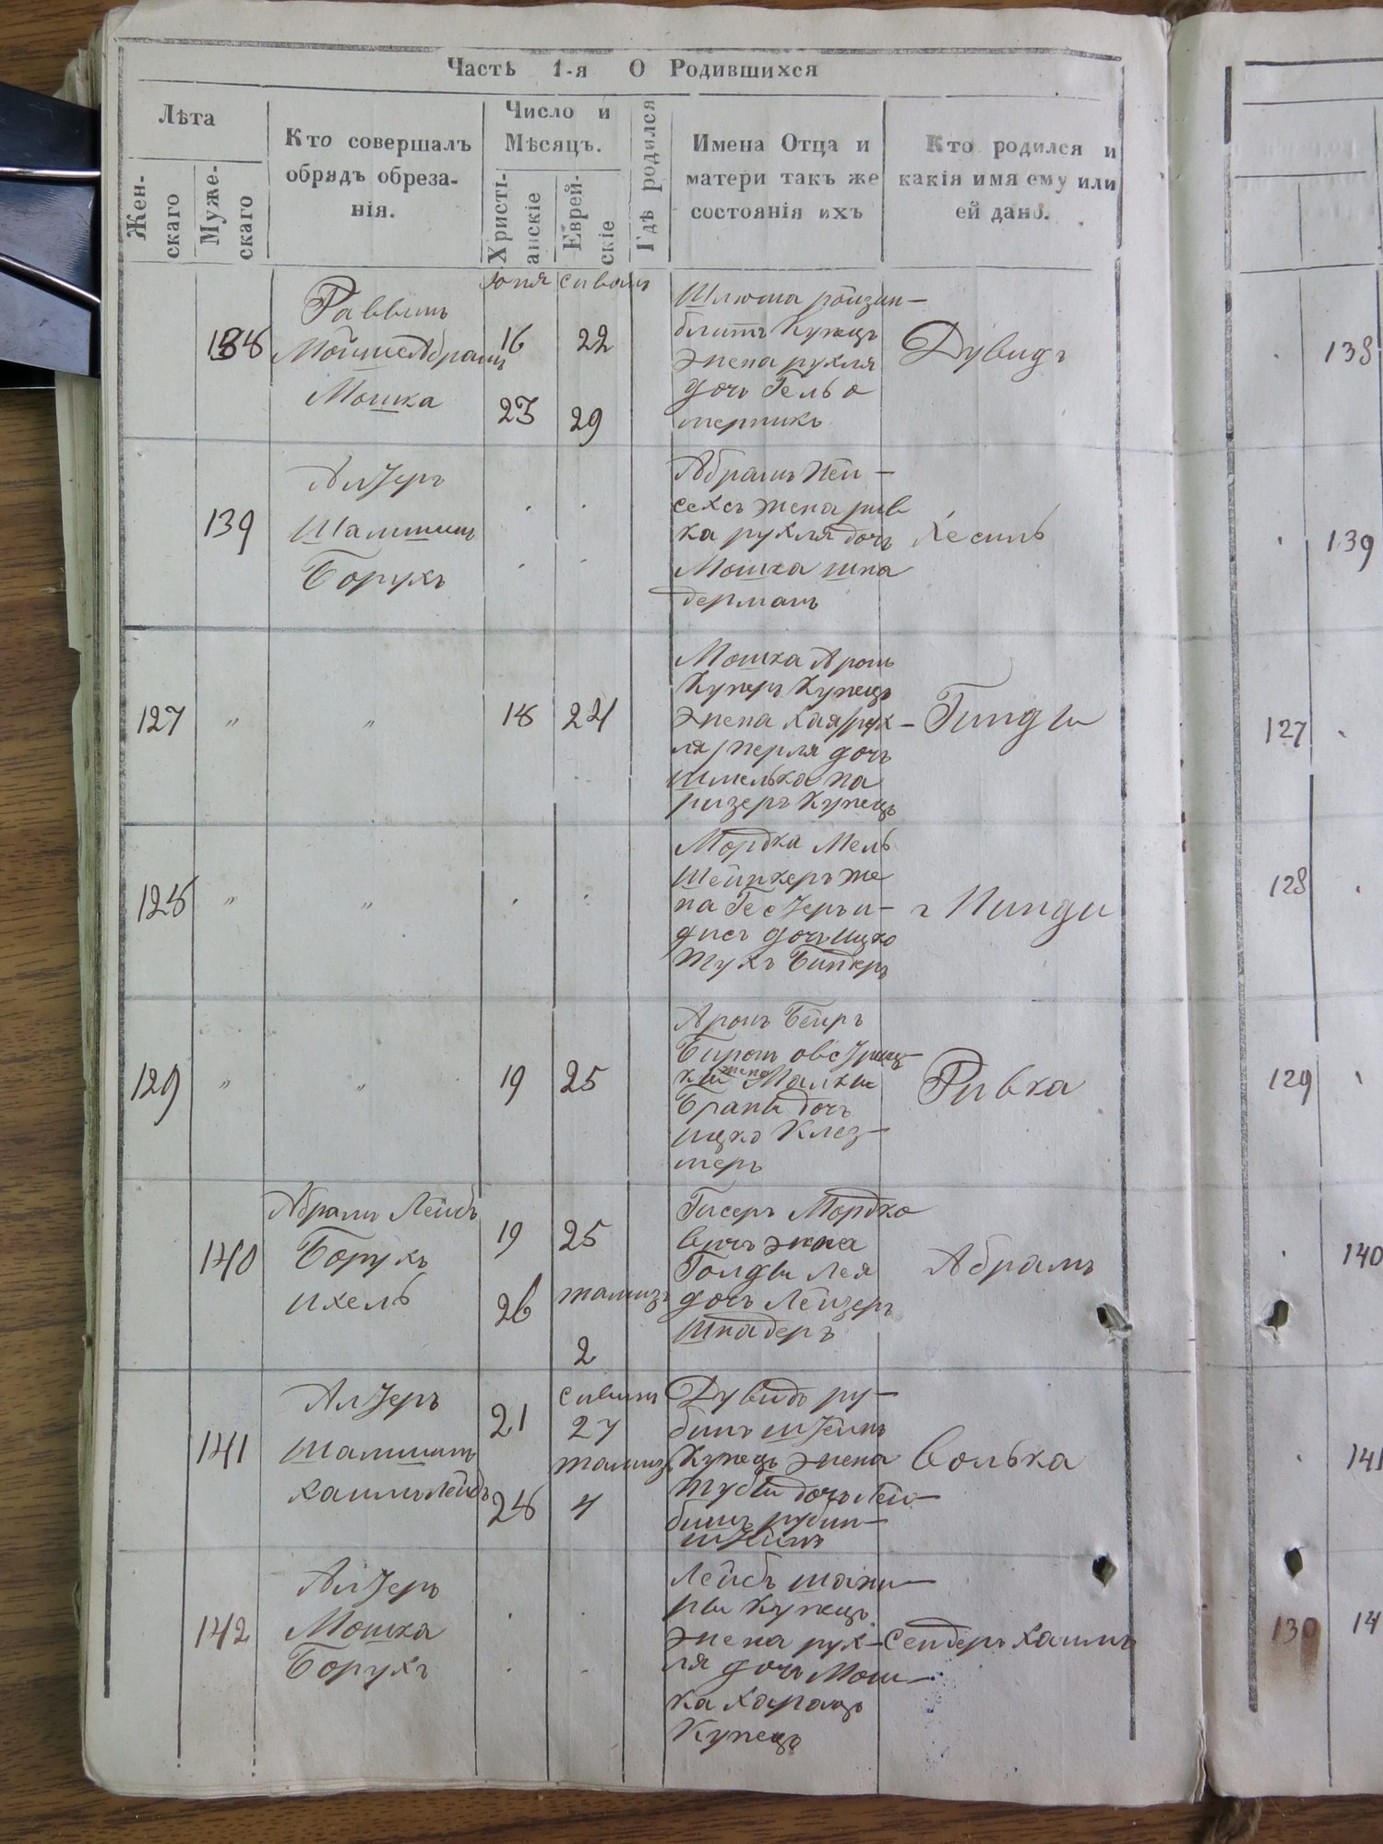 Часть 1-я О Родившихся
Лѣта
Жен-
скаго
Муже-
скаго
Кто совершалъ
обрядъ обреза-
нія.
Число и
Мѣсяцъ.
Христі-
анскіе
Еврей-
скіе
Гдѣ родился
Имена Отца и
матери такъ же
состоянія ихъ
Кто родился и
какія имя ему или
ей дано.
138
Раввинъ
Мойше Абрамъ
Мошка
июня
сиванъ
16
22
23
29
Шлюма ройзин-
блитъ Купецъ
жена рухля
дочь Гельо
Дувидъ
139
Алтеръ
Шамшинъ
Борухъ
Абрамъ Пей-
сехсъ жена рив
ка рухля дочь
Мошка шна
дерманъ
Хесиль
127
"
"
18
24
Мошка Аронъ
Куперъ Купецъ
жена Хая рух-
ля перля дочь
Шмелька па
ризеръ Купецъ
Гинды
128
"
"
Мордка Мель
Шейнкеръ же
на Гестеръ и-
дисъ дочь Ицко
Тухъ Биндеръ
Минди
129
"
"
19
25
Аронъ Бейръ
кій жена Малки
Браны дочь
ицко Клез-
меръ
Ривка
140
Абрамъ Лейбъ
Борухъ
ихель
19
25
26
тамизъ
2
Гисеръ Мордко
вичъ жена
Голды Лея
дочь Лейзеръ
Шнадеръ
Абрамъ
141
Алтеръ
шамшинъ
хаимъ Лейбъ
21
сиванъ
27
тамизъ
28
4
Дувидъ ру-
бинъ штейнъ
Купецъ жена
Тубы дочь Лей-
бишъ рубин-
штейнъ
Волька
142
Алтеръ
Мошка
Борухъ
Лейбъ шапи-
ры Купецъ
жена рух-
ля дочь Мош-
ка харацъ
Купецъ
Сендеръ Хаимъ
138
139
127
128
129
140
141
130
14